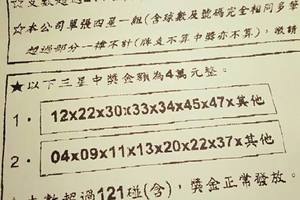 ☆本公司單張四星一組(含球數及號碼完全相同多筆
超過部分一律不計(牌支不算中獎亦不算),敬請
★以下三星中獎金額為4萬元整。
1・ 12x22x30x33x34x45x47x其他
2・ 04x09x11x13x20x22x37x其他
數超過121碰(含),獎金正常發放。